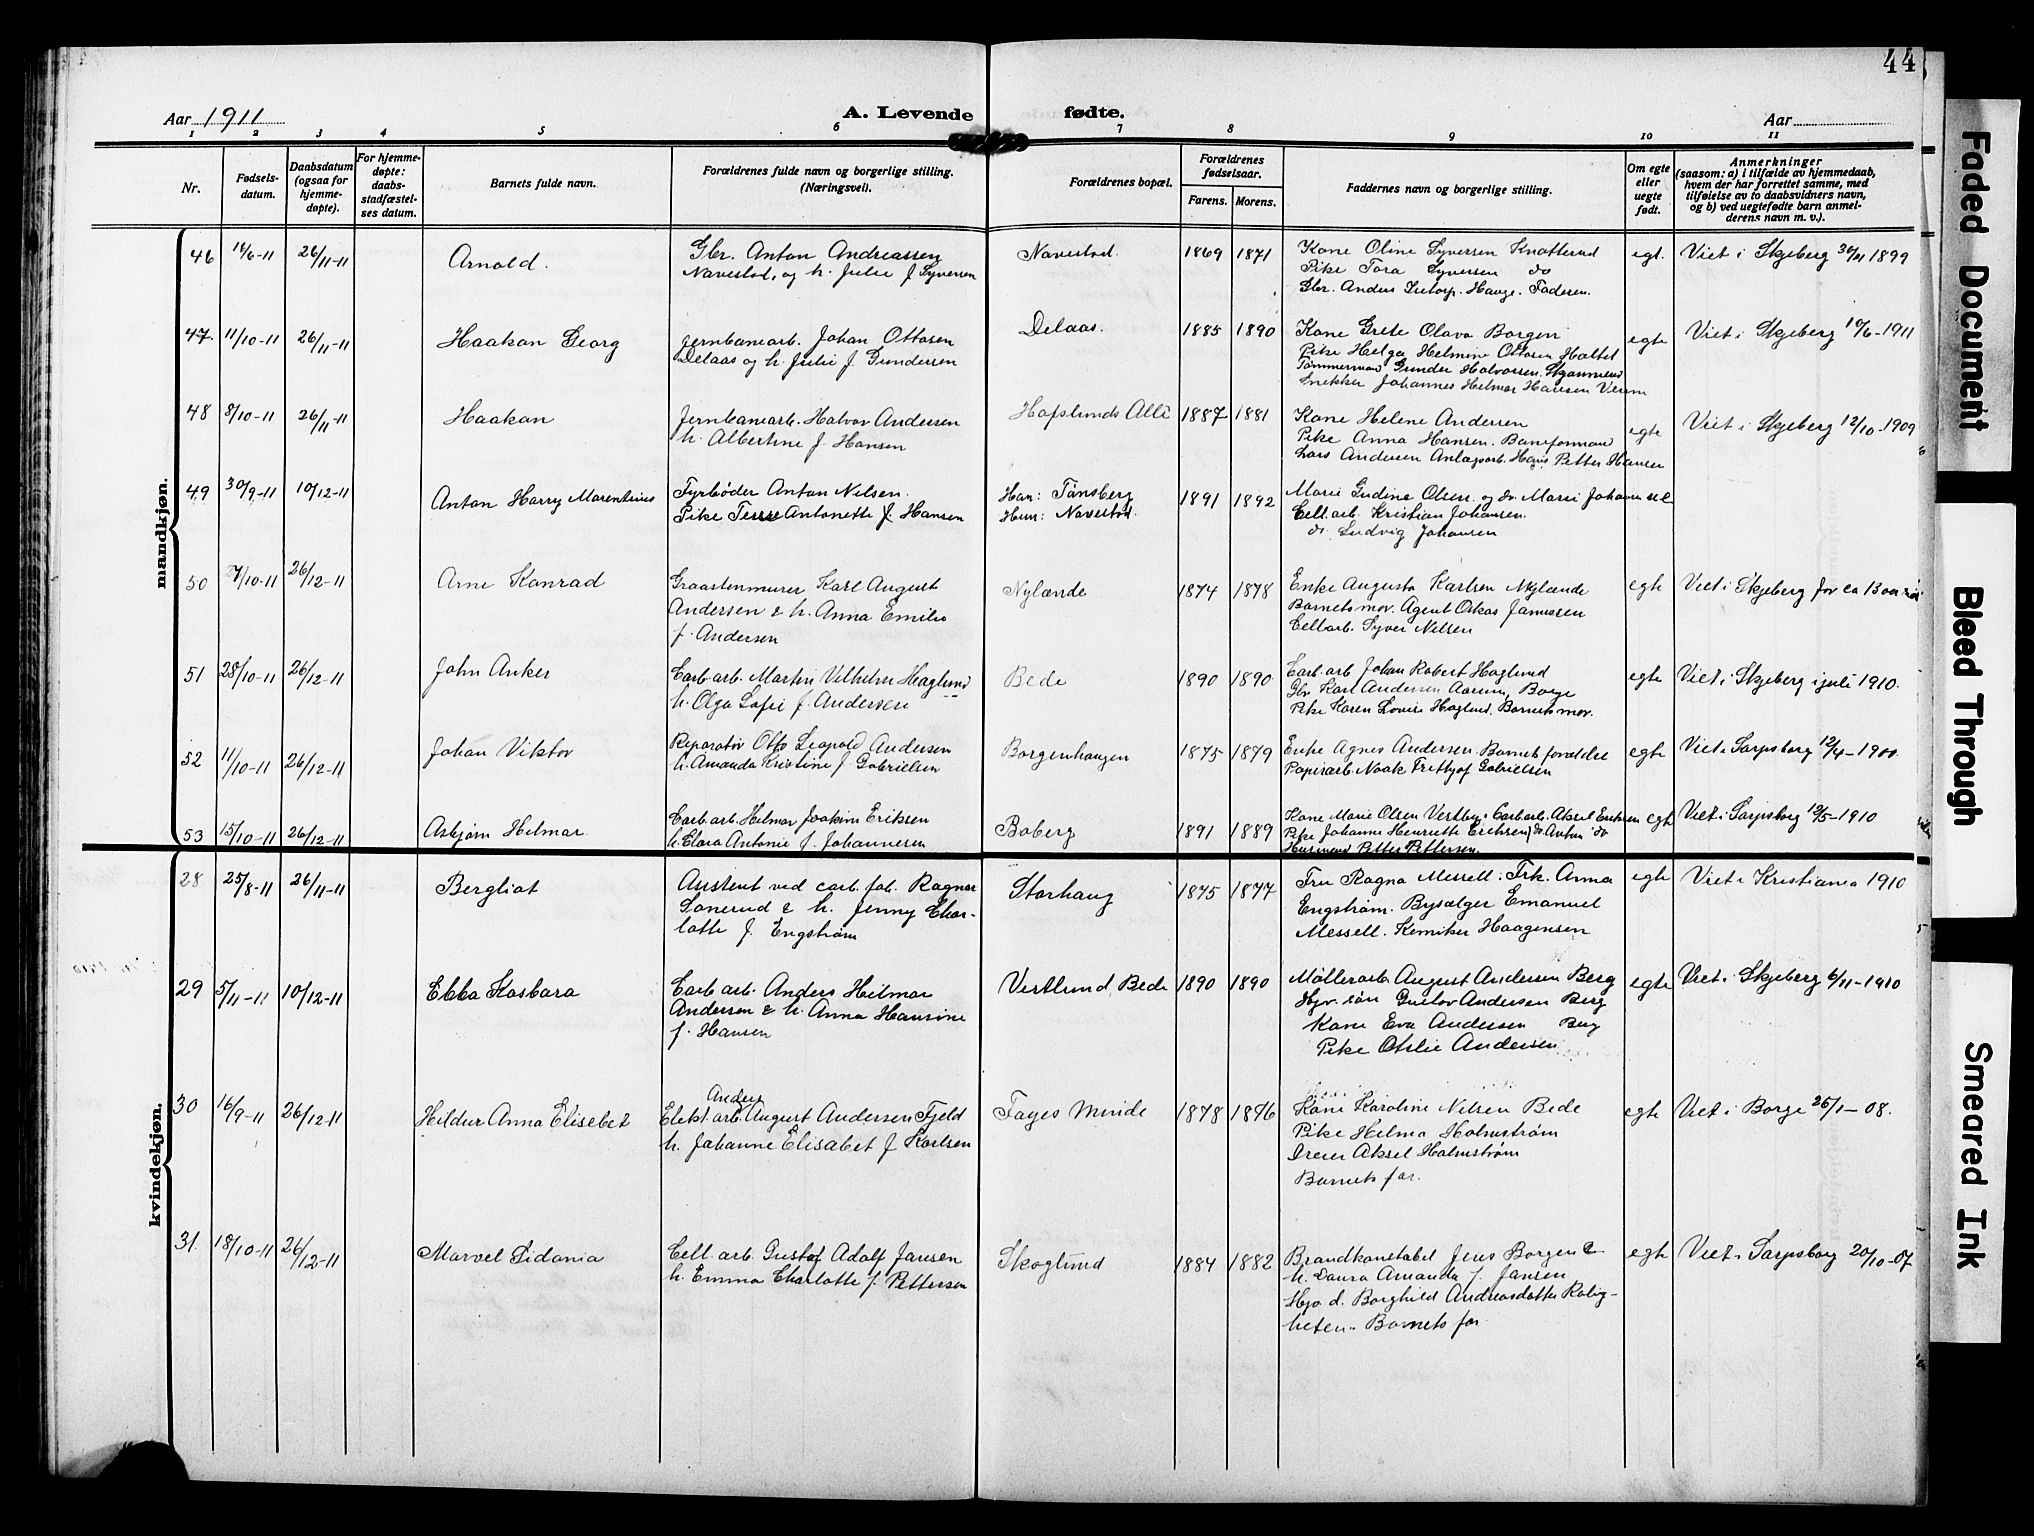 44
Aar 1911
A. Levende fødte.
Aar
1 2 3 4 5 6 7 8 9 10 11
Nr.
Fødsels-
datum.
Daabsdatum
(ogsaa for
hjemme-
døpte).
For hjemme-
døpte:
daabs-
stadfæstel-
ses datum.
Barnets fulde navn.
Forældrenes fulde navn og borgerlige stilling.
(Næringsvei).
Forældrenes bopæl.
Forældrenes
fødselsaar.
Farens. Morens.
Faddernes navn og borgerlige stilling.
Om egte
eller
uegte
født.
Anmerkninger
(saasom: a) i tilfælde av hjemmedaab,
hvem der har forrettet samme, med
tilføielse av to daabsvidners navn,
og b) ved uegtefødte barn anmel-
derens navn m. v.).
mandkjøn.
46 14/6-11 26/11-11 Arnold.
Gbr. Anton Andreassen
Navestad, og h. Julie f. Syversen
Navestad. 1869 1871
Kone Oline Syversen Knatterud
Pike Tora Syversen do
Gbr. Anders Isetorp. Hauge. Faderen.
egt. Viet i Skjeberg 30/11 1899
47. 11/10-11 26/11-11 Haakon Georg
jernbanearb. Johan Ottosen
Delaas og h. Julie f. Gundersen
Delaas. 1885 1890
Kone Grete Olava Borgen
Pike Helga Helmine Ottosen Haltet
Tømmermand Gunder Halvorsen
Snekker Johannes Helmer Hansen
egte Viet i Skjeberg 10/6-1911
48 8/10-11 26/11-11 Haakon
Jernbanearb. Halvor Andersen
h. Albertine f. Hansen
Hafslunds Allé 1887 1881
Kone Helene Andersen
Pike Anna Hansen. Baneformand
Lars Andersen Anlægsarb. Hans Petter Hansen
egte Viet i Skjeberg 12/10-1909
49 30/9-11 10/12-11 Anton Harry Marentius
Fyrbøder Anton Nilsen.
Pike Antonette f. Hansen
Han: Tønsberg
Hun: Navestad. 1891 1892
Marie Gudine Olsen. og do. Marie Johansen
Cell.arb. Kristian Johansen.
do. Ludvig Johansen
50 7/10-11 26/12-11 Arne Konrad
Graastenmurer Karl August
Andersen & h. Anna Emilie
f. Andersen
Nylænde 1874 1878
Enke Augusta Karlsen Nylænde
Barnets mor. Agent Oskar Jansen
Cellarb. Syver Nilsen
egte Viet i Skjeberg for ca 13 aar
51 28/10-11 26/12-11 John Anker
Carb.arb. Martin Vilhelm Haglund
h. Olga Sofie f. Andersen
Bede 1890 1890
Carb.arb Johan Robert Haglund
Gbr Karl Andersen Aarum, Borge
Pike Karen Lovise Haglund. Barnets mor.
egte Viet i Skjeberg i juli 1910.
52 11/10-11 26/12-11 Johan Viktor
Reparatør Otto Leopold Andersen
h. Amanda Kristine f. Gabrielsen
Borgenhaugen 1875 1879
Enke Agnes Andersen. Barnets forældre
Papirarb. Noak Fritthjof Gabrielsen
egte Viet i Sarpsborg 12/4-1900
53 15/10-11 26/12-11 Asbjørn Hilmar.
Carb.arb. Hilmar Joakim Eriksen
h. Clara Antonie f. Johannesen
Boberg 1891 1889
Kone Marie Olsen Vestby. Carb.arb. Aksel Eriksen
Pike Johanne Henriette Eriksen, do. Anton do
Husmand Petter Pettersen.
egte Viet i Sarpsborg 12/5-1910
kvindekjøn.
28 25/8-11 26/11-11 Bergliot
Assistent ved carb. fab. Ragnar
Sonerud & h. Jenny Char-
lotte f. Engstrøm
Storhaug 1875 1877
Fru Ragna Messell. Frk. Anna
Engstrøm. Bysælger Emanuel
Messell. Kemiker Haagensen
egte Viet i Kristiania 1910
29 5/11-11 10/12-11 Ebba Kasbara
Carb.arb. Anders Hilmar
Andersen & h. Anna Hansine
f. Hansen
Vestlund Bede 1890 1890
Møllerarb August Andersen Berg
Hjv. søn Gustav Andersen Berg
Kone Eva Andersen Berg
Pike Otilie Andersen
egte Viet i Skjeberg 6/11-1910
30 16/9-11 26/12-11 Hildur Anna Elisebet
Anders
Elekt.arb. August Andersen Fjeld
h. Johanne Elisabet f. Karlsen
Fayes Minde 1878 1876
Kone Karoline Nilsen Bede
Pike Hilma Holmstrøm
Dreier Aksel Holmstrøm
Barnets far.
egte Viet i Borge 26/1-08.
31. 18/10-11 26/12-11 Marvel Sidania
Cell. arb. Gustaf Adolf Jansen
h. Emma Charlotte f. Pettersen
Skoglund 1884 1882
Brandkonstabel Jens Borgen &
h. Laura Amanda f. Jansen
Hjv d. Borghild Andreasdatter Rolig-
heten. Barnets far.
egte Viet i Sarpsborg 20/10-07
Faded Document
Bleed Through
Smeared Ink